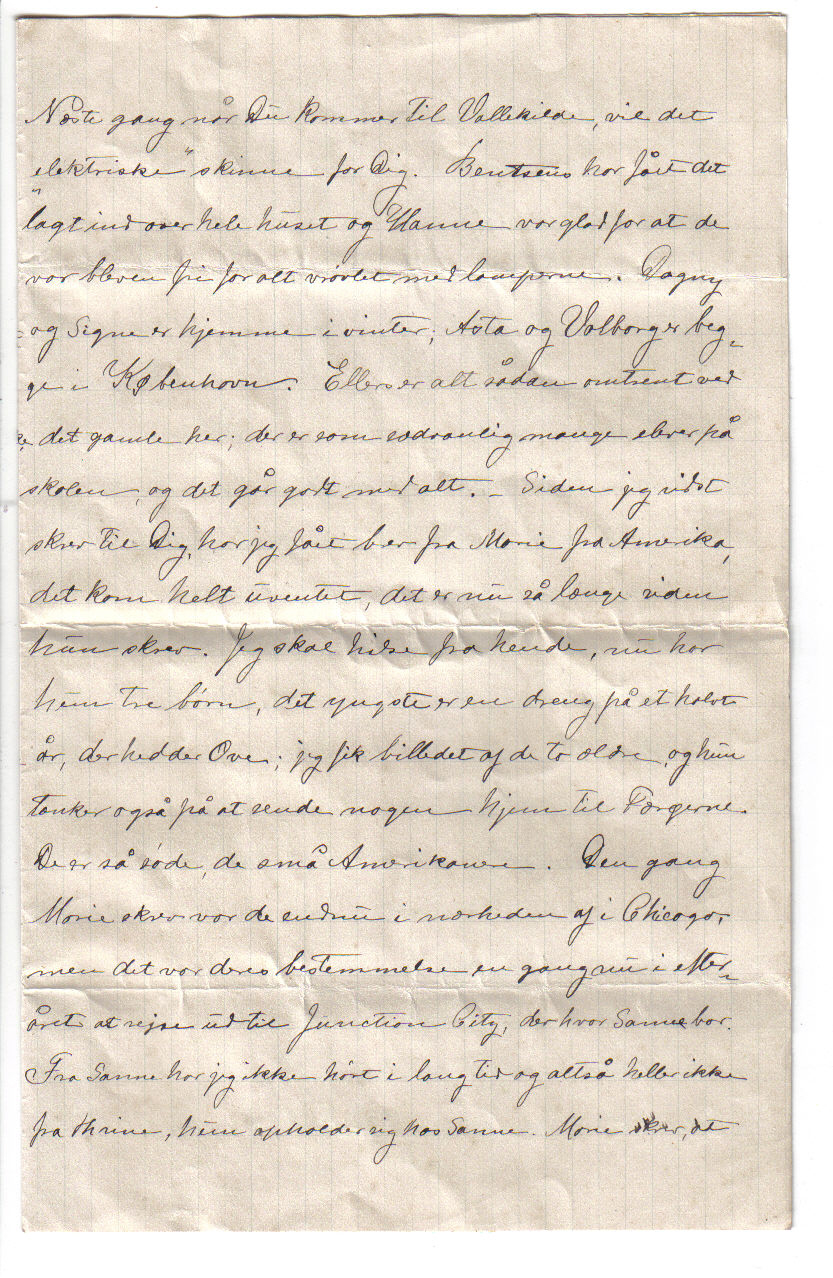 Næste gang når Du kommer til Vallekilde, vil det
"elektriske" skinne for Dig. Bentsens har fået det
lagt ind over hele huset og Hanne var glad for at de
var bleven fri for alt vrøvlet med lamperne. Dagny
og Signe er hjemme i vinter; Asta og Valborg er beg-
ge i København. Ellers er alt sådan omtrent ved
det gamle her; der er som sædvanlig mange elever på
skolen, og det går godt med alt. – Siden jeg sidst
skrev til Dig, har jeg fået brev fra Marie fra Amerika,
det kom helt uventet, det er nu så længe siden
hun skrev. Jeg skal hilse fra hende, nu har
hun tre børn, det yngste er en dreng på et halvt
år, der hedder Ove; jeg fik billedet af de to ældre, og hun
tænker også på at sende nogen hjem til Færøerne.
De er så søde, de små Amerikanere. Den gang
Marie skrev var de endnu i nærheden af i Chicago,
men det var deres bestemmelse en gang nu i efter-
året at rejse ud til Junction City, der hvor Sanne bor.
Fra Sanne har jeg ikke hørt i lang tid og altså heller ikke
fra Thrine, hun opholder sig hos Sanne. Marie skrev, at